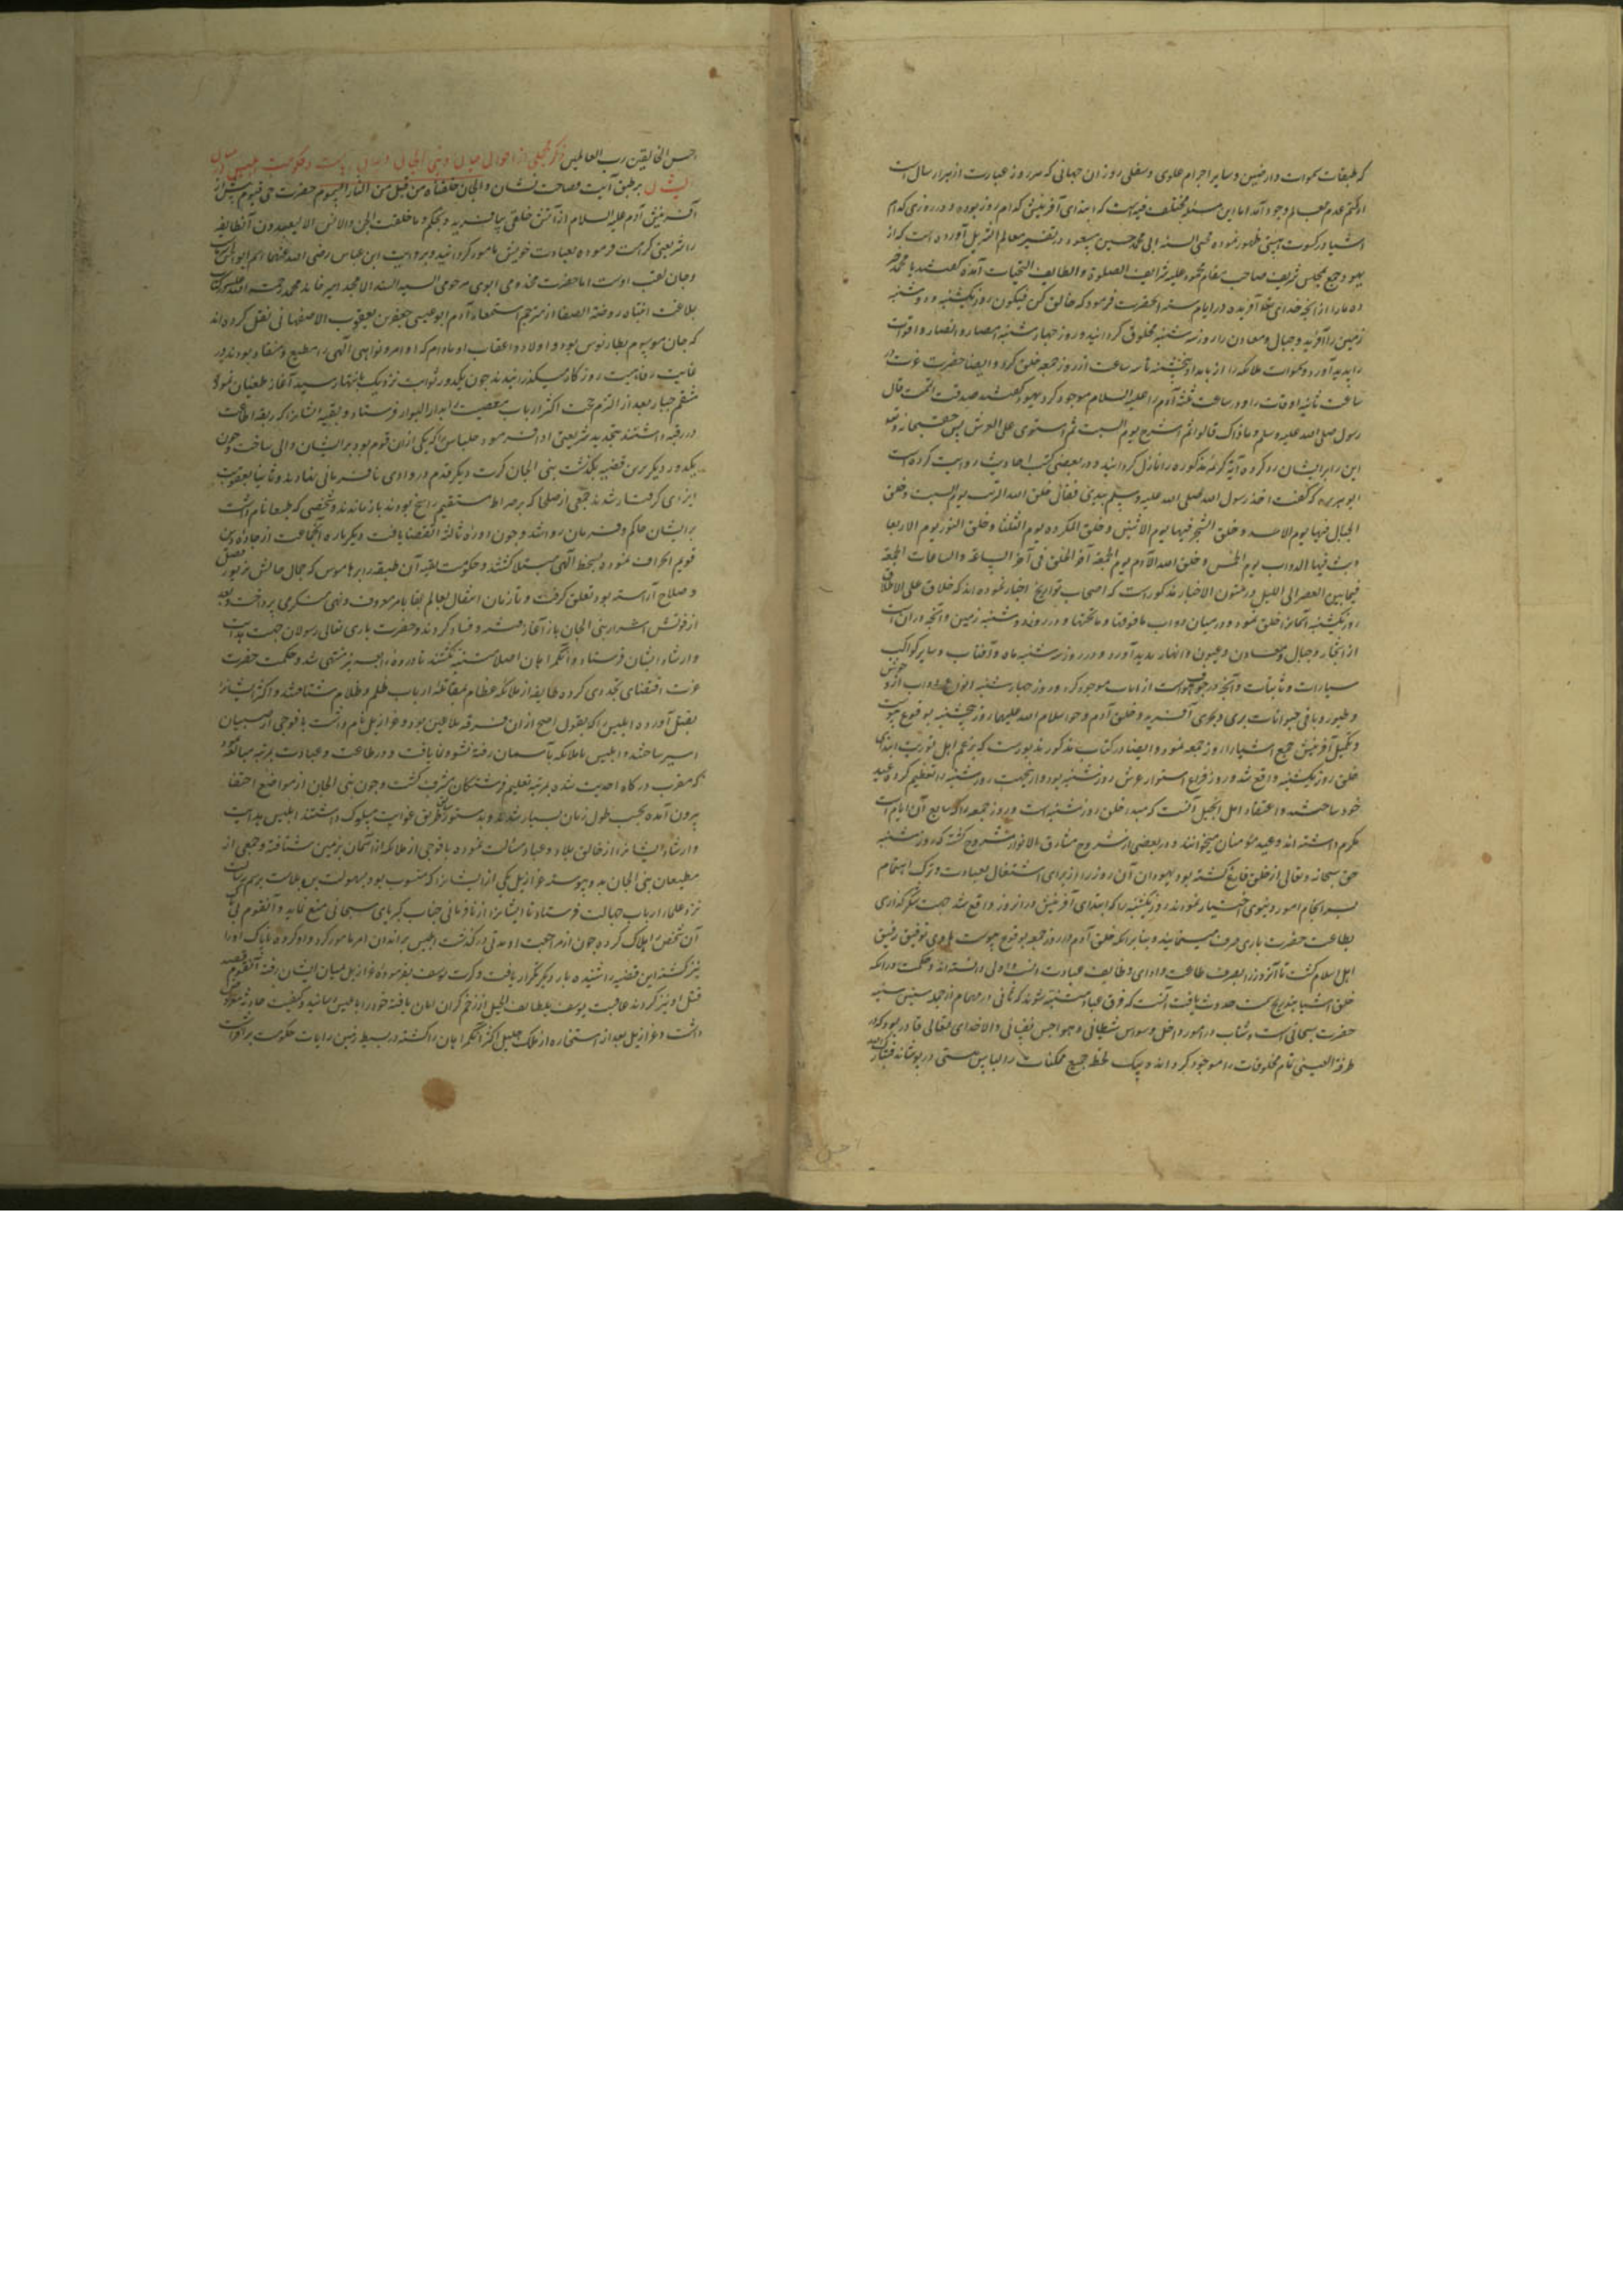 که طبقات سموات و ارضین و سایر اجرام علوی و سفلی روز آن جهانی که هر روز عبارت از هزار سال است
از کتم عدم بعالم وجود آمد اما این مسئله مختلف فیه است که ابتدای آفرینش کدام روز بوده و در روزی کدام
اشیا در کسوت هستی ظهور نموده محیی السنه ابی محمد حسین بن مسعود در تفسیر معالم التنزیل آورده است که از
یهود جمع بمجلس شریف صاحب مقام محمود علیه شرایف الصلوة و لطایف التحیات آمده گفتند یا محمد خبر
ده ما را از آنچه خدای تعالی آفریده در ایام سته آنحضرت فرمود که خالق کن فیکون روز یکشنبه و دوشنبه
زمین را آفرید و جبال و معادن را روز سه شنبه مخلوق گردانید و روز چهارشنبه امصار و انهار و اقوات
را پدید آورد و سموات و ملائکه را از بامداد پنجشنبه تا سه ساعت از روز جمعه خلق کرد و ایضا حضرت عزت در
ساعت ثانیه اوقات را و در ساعت ثالثه آدم را علیه السلام موجود کرد یهود گفتند صدقت ان اتممت قال
رسول صلی الله علیه وسلم و ما ذاک قالوا ثم استرح یوم السبت ثم استوی علی العرش پس حق سبحانه و تعالی
این را بر ایشان رد کرده آیه کریمه مذکوره را نازل گردانید و در بعضی کتب احادیث روایت کرده است
ابو هریره که گفت اخذ رسول الله صلی الله علیه وسلم بیدی فقال خلق الله التربة یوم السبت و خلق
الجبال فیها یوم الاحد و خلق الشجر فیها یوم الاثنین و خلق المکروه یوم الثلثا و خلق النور یوم الاربعا
و بث فیها الدواب یوم الخمیس و خلق الله الآدم یوم الجمعة آخر الخلق فی آخر الساعة و الساعات الجمعة
فیما بین العصر الی اللیل و در متون الاخبار مذکور است که اصحاب تواریخ اخبار نموده اند که خلاق علی الاطلاق
روز یکشنبه آسمانرا خلق نمود و در میان دواب ما فوقها و ما تحتها و در روز دوشنبه زمین و آنچه در آن است
از اشجار و جبال و معادن و عیون و انهار پدید آورد و در روز سه شنبه ماه و آفتاب و سایر کواکب
سیارات و ثابتات و آنچه در جوف هواست از امات موجود کرد و روز چهارشنبه انواع دواب از وحوش
و طیور و باقی حیوانات بری و بحری آفرید و خلق آدم و حوا سلام الله علیهما روز پنجشنبه بوقوع پیوست
و تکمیل آفرینش جمیع اشیا را روز جمعه نمود و ایضا در کتاب مذکور مذبور است که بزعم اهل توریت ابتدای
خلق روز یکشنبه واقع شد و روز فراغ استوار عرش روز شنبه بود و از آنجهت روز شنبه را تعظیم کرده عید
خود ساختند و اعتقاد اهل انجیل آنست که مبداء خلق روز شنبه است و روز جمعه را که سابع آن ایام است
مکرم داشته اند و عید مؤمنان میخوانند و در بعضی از شروح مشارق الانوار مشروح گشته که روز شنبه
حق سبحانه و تعالی از خلق فارغ گشته بود یهودان آن روز را از برای اشتغال بعبادت و ترک اهتمام
بسرانجام امور دنیوی اختیار نموده اند و روز یکشنبه را که ابتدای آفرینش در آن روز واقع شد جهت شکرگذاری
بطاعت حضرت باری صرف مسیحائیند و بنا بر آنکه خلق آدم در روز جمعه بوقوع پیوست یاوری توفیق رفیق
اهل اسلام گشت تا آنروز را بصرف طاعت و ادای وظایف عبادت انسب و اولی دانسته اند و حکمت در آنکه
خلق اشیا بتدریج سمت حدوث یافت آنست که فرق عباد متنبه شوند که تانی در مهام از جمله سنن سنیه
حضرت سبحانی است و شتاب در امور داخل وسواس شیطانی و هواجس نفسانی و الا خدای تعالی قادر بود که در
طرفة العینی تمام مخلوقات را موجود گرداند و بیک لحظه جمیع ممکنات را لباس هستی در پوشاند فتبارک الله
احسن الخالقین رب العالمین ذکر مجملی از احوال جان و بنی الجان و حکومت ابلیس در میان
ایشان بر طبق آیت فصاحت نشان و الجان خلقناه من قبل من النار السموم حضرت حی قیوم پیش از
آفرینش آدم علیه السلام از آتش خلقی بیافرید و بحکم و ما خلقت الجن و الانس الا لیعبدون آنطایفه
را شریعتی کرامت فرموده بعبادت خویش مامور گردانید و بروایت ابن عباس رضی الله عنهما اسم ابو الجن
و جان لقب اوست اما حضرت مخدومی ابوی مرحومی السید السند الامجد امیر خاوند محمد رحمت الله علیه در کتاب
بلاغت انتباه روضة الصفا از مترجم استماع آدم ابو عیسی جعفر بن یعقوب الاصفهانی نقل کرده اند
که جان موسوم بطارنوس بود و اولاد و اعقاب او مادام که اوامر و نواهی الهی را مطیع و منقاد بودند در
غایت رفاهیت روزگار میگذرانیدند چون یکدور ثوابت نزدیک بانتها رسید آغاز طغیان نمودند
منتقم جبار بعد از الزام حجت اکثر ارباب معصیت را بدار البوار فرستاد و بقیه ایشانرا که ربقه اطاعت
در رقبه داشتند بتجدید شریعتی ارشاد فرمود حلیائیس را که یکی از آن قوم بود بر ایشان والی ساخت و چون
یکدور دیگر برین قضیه بگذشت بنی الجان کرت دیگر قدم در وادی نافرمانی نهادند و ثانیا بعقوبت
ایزدی گرفتار شدند جمعی از صلحا که بر صراط مستقیم راسخ بودند باز ماندند و شخصی که بلیقا نام داشت
بر ایشان حاکم و فرمان روا شد و چون دوره ثالثه انقضا یافت دیگرباره آنجماعت از جاده دین
قویم انحراف نموده بسخط الهی مبتلا گشتند و حکومت بقیه آن طبقه را بر هاموس که جمال حالش بزیور فضل
و صلاح آراسته بود تعلق گرفت و تا زمان انتقال بعالم بقا بامر معروف و نهی منکر می پرداخت و بعد
از فوتش اشرار بنی الجان باز آغاز فتنه و فساد کردند و حضرت باری تعالی رسولان جهت هدایت
و ارشاد ایشان فرستاد و آن گمراهان اصلا متنبه نگشتند تا دوره رابعه نیز منتهی شد و حکمت حضرت
عزت اقتضای تجددی کرده طایفه از ملائکه عظام بمقاتله ارباب ظلم و ظلام شتافتند و اکثر ایشانرا
بقتل آورده ابلیس را که بقول اصح از آن فرقه ملاعین بود و عزازیل نام داشت با فوجی از صبیان
اسیر ساختند و ابلیس با ملائکه بآسمان رفته نشو و نما یافت و در طاعت و عبادت بمرتبه مبالغه نمود
که مقرب درگاه احدیت شده بمرتبه تعلیم فرشتگان مشرف گشت و چون بنی الجان از مواضع اختفا
بیرون آمده بحسب طول زمان بسیار شدند و بدستور سابق طریق غوایت مسلوک داشتند ابلیس هدایت
و ارشاد ایشانرا از خالق بلاد و عباد مسالت نموده با فوجی از ملائکه از آسمان بزمین شتافته و جمعی از
مطیعان بنی الجان بدو پیوسته عزازیل یکی از ایشانرا که منسوب بود بسهلوب بن بلاست برسم رسالت
نزد علماء ارباب جهالت فرستاد تا ایشانرا از نافرمانی جناب کبریای سبحانی منع نماید و آنقوم لئیم
آن شخص را هلاک کرده چون از مراجعت او مدتی در گذشت ابلیس دیگری را بدان امر مامور کرد و آن گروه ناپاک او را
نیز کشته این قضیه را شنیده بار دیگر تکرار یافت و کرت یوسف بفرموده عزازیل میان ایشان رفته آنقوم قصد
قتل او نیز کردند عاقبت یوسف بلطایف الحیل از زخم گران امان یافته خود را بابلیس رسانید و کیفیت حادثه معروض
داشت و عزازیل بعد از استخاره از ملک جلیل اکثر آن گمراهان را کشته در بسیط زمین رایات حکومت برافراشت